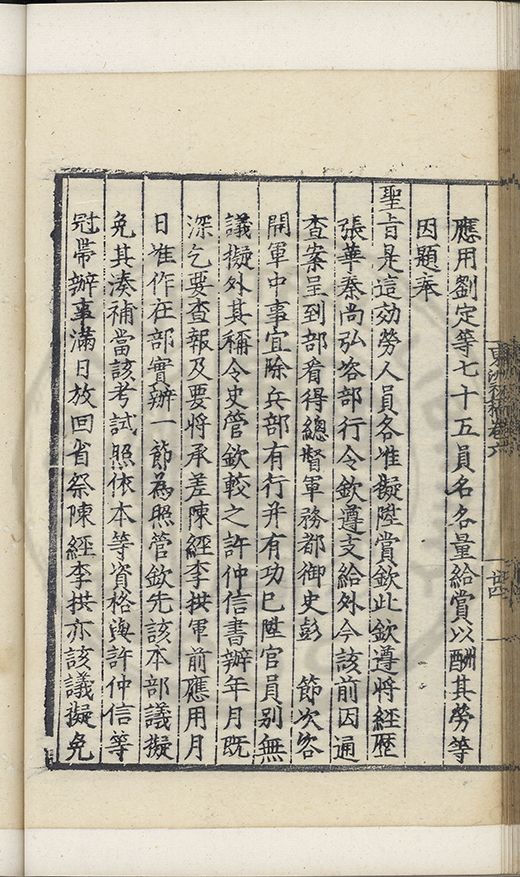 應用劉定等七十五員名各量給賞以酬其勞等
因題奉
聖旨是這効勞人員各准擬陞賞欽此欽遵將經歷
張華秦尚弘咨部行令欽遵支給外今該前因通
查案呈到部看得總督軍務都御史彭　節次咨
開軍中事宜除兵部有行并有功已陞官員別無
議擬外其稱令史管欽較之許仲信書辦年月既
深乞要查報及要將承差陳經李拱軍前應用月
日准作在部實辦一節為照管欽先該本部議擬
免其湊補當該考試照依本等資格與許仲信等
冠帶辦事滿日放回省祭陳經李拱亦該議擬免
卷六
廿四